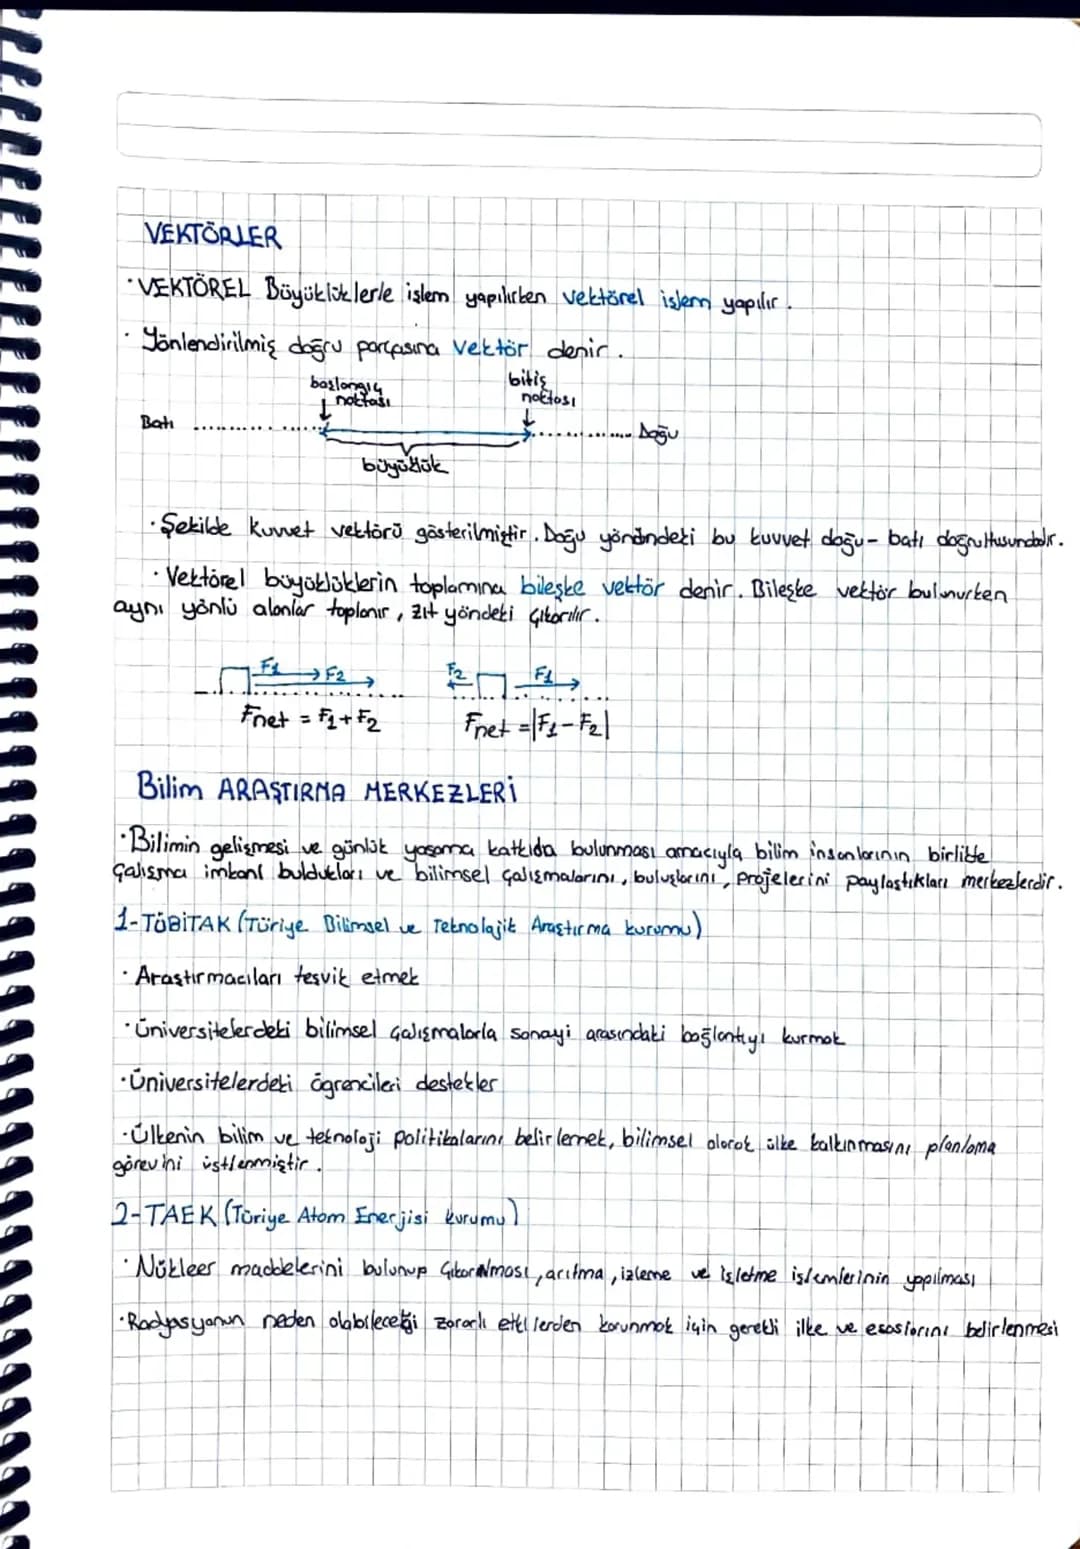 VEKTÖRLER
· VEKTÖREL Büyüklüklerle işlem yapılırken vektörel işlem yapılır.
· Yönlendirilmiş doğru parçasına vektör denir.
başlangıç noktası
bitiş noktası
Batı
Doğu
büyüklük
· Şekilde kuvvet vektörü gösterilmiştir. Doğu yönündeki bu kuvvet doğu-batı doğrultusundadır.
· Vektörel büyüklüklerin toplamına bileşke vektör denir. Bileşke vektör bulunurken
aynı yönlü alanlar toplanır, zıt yöndeki çıkarılır.
F1 F2
F2 F1
Fnet = F1+F2
Fnet =|F1-F2|
Bilim ARAŞTIRMA MERKEZLERİ
· Bilimin gelişmesi ve günlük yaşama katkıda bulunması amacıyla bilim insanlarının birlikte
çalışma imkanı buldukları ve bilimsel çalışmalarını, buluşlarını, projelerini paylaştıkları merkezlerdir.
1-TÜBİTAK (Türiye Bilimsel ve Teknolajik Araştırma kurumu)
· Araştırmacıları teşvik etmek
· Üniversitelerdeki bilimsel çalışmalarla sanayi arasındaki bağlantıyı kurmak
· Üniversitelerdeki öğrencileri destekler
· Ülkenin bilim ve teknoloji politikalarını belirlemek, bilimsel olarak ülke kalkınmasını planlama
görevini üstlenmiştir.
2-TAEK (Türiye Atom Enerjisi kurumu)
· Nükleer maddelerini bulunup çıkarılması, arıtma, izleme ve işletme işlemlerinin yapılması
· Radyasyonun neden olabileceği zararlı etkilerden korunmak için gerekli ilke ve esaslarını belirlenmesi